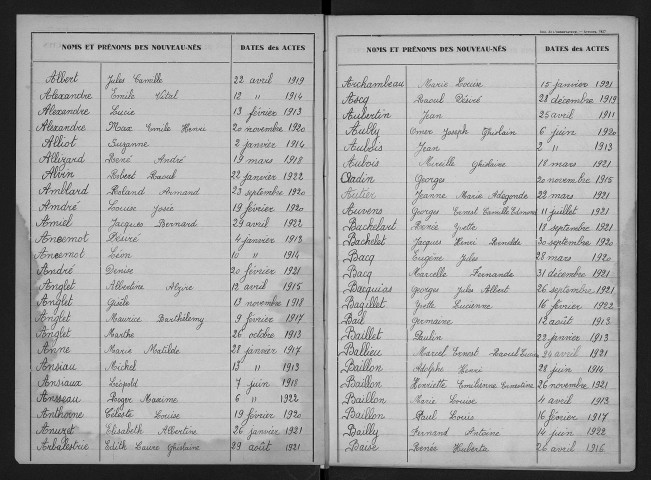 NOMS ET PRÉNOMS DES NOUVEAU-NÉS DATES des ACTES
Albert Jules Camille 22 avril 1919
Alexandre Emile Vital 12 " 1914
Alexandre Lucie 13 février 1913
Alexandre Max Emile Henri 20 novembre 1920
Alliot Suzanne 2 janvier 1914
Allizard René André 19 mars 1918
Alvin Robert Raoul 22 janvier 1922
Amblard Roland Armand 23 septembre 1920
André Louise Josée 19 février 1920
Amiel Jacques Bernard 29 avril 1922
Ancemot Désiré 4 janvier 1913
Ancemot Léon 10 " 1914
André Denise 20 février 1921
Anglet Albertine Alzire 12 avril 1915
Anglet Gisèle 13 novembre 1918
Anglet Maurice Barthélemy 9 février 1917
Anglet Marthe 26 octobre 1913
Anne Marie Matilde 28 janvier 1917
Ansiau Michel 13 " 1913
Ansiaux Léopold 7 juin 1918
Ansseau Roger Maxime 6 " 1922
Anthoine Céleste Louise 19 février 1920
Anuzet Elisabeth Albertine 26 janvier 1921
Arbalestrie Edith Laure Ghislaine 29 août 1921
NOMS ET PRÉNOMS DES NOUVEAU-NÉS DATES des ACTES
Archambeau Marie Louise 15 janvier 1921
Ascq Raoul Désiré 28 décembre 1919
Aubertin Jean 25 avril 1911
Aubly Omer Joseph Ghislain 6 juin 1920
Aubois Jean 2 " 1913
Aubois Mireille Ghislaine 18 mars 1921
Audin Georges 20 novembre 1915
Autier Jeanne Marie Adegonde 22 mars 1921
Aurens Georges Ernest Camille Edmond 11 juillet 1921
Bachelart Renée Yvette 18 septembre 1921
Bachelet Jacques Henri Reinelde 30 septembre 1920
Bacq Eugène Jules 28 mars 1920
Bacq Marcelle Fernande 31 décembre 1921
Bacquias Georges Jules Albert 26 septembre 1921
Bagillet Yvette Lucienne 16 février 1922
Bail Germaine 12 août 1913
Baillet Paulin 22 janvier 1913
Ballieu Marcel Ernest Raoul 24 avril 1921
Baillon Adolphe Henri 28 juin 1914
Baillon Henriette Emilienne Ernestine 26 novembre 1921
Baillon Marie Louise 4 avril 1913
Baillon Paul Louis 16 février 1917
Bailly Fernand Antoine 14 juin 1922
Baise Renée Huberte 26 avril 1916